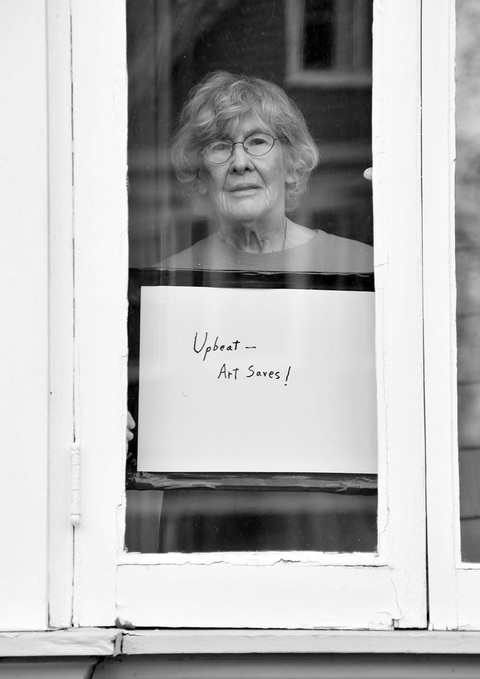 Upbeat —
Art Saves!